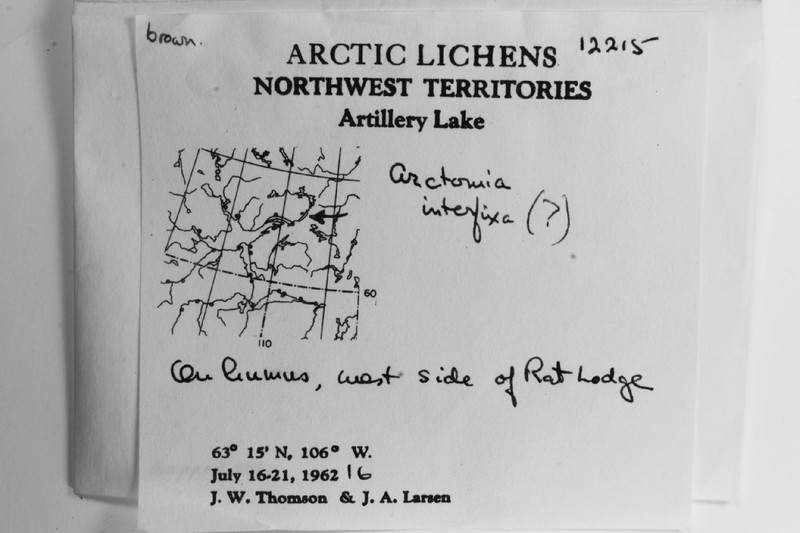 brown.
ARCTIC LICHENS 12215
NORTHWEST TERRITORIES
Artillery Lake
Arctomia
interfixa (?)
60
110
On humus, west side of Rat Lodge
63° 15' N, 106° W.
July 16-21, 1962 16
J. W. Thomson & J. A. Larsen